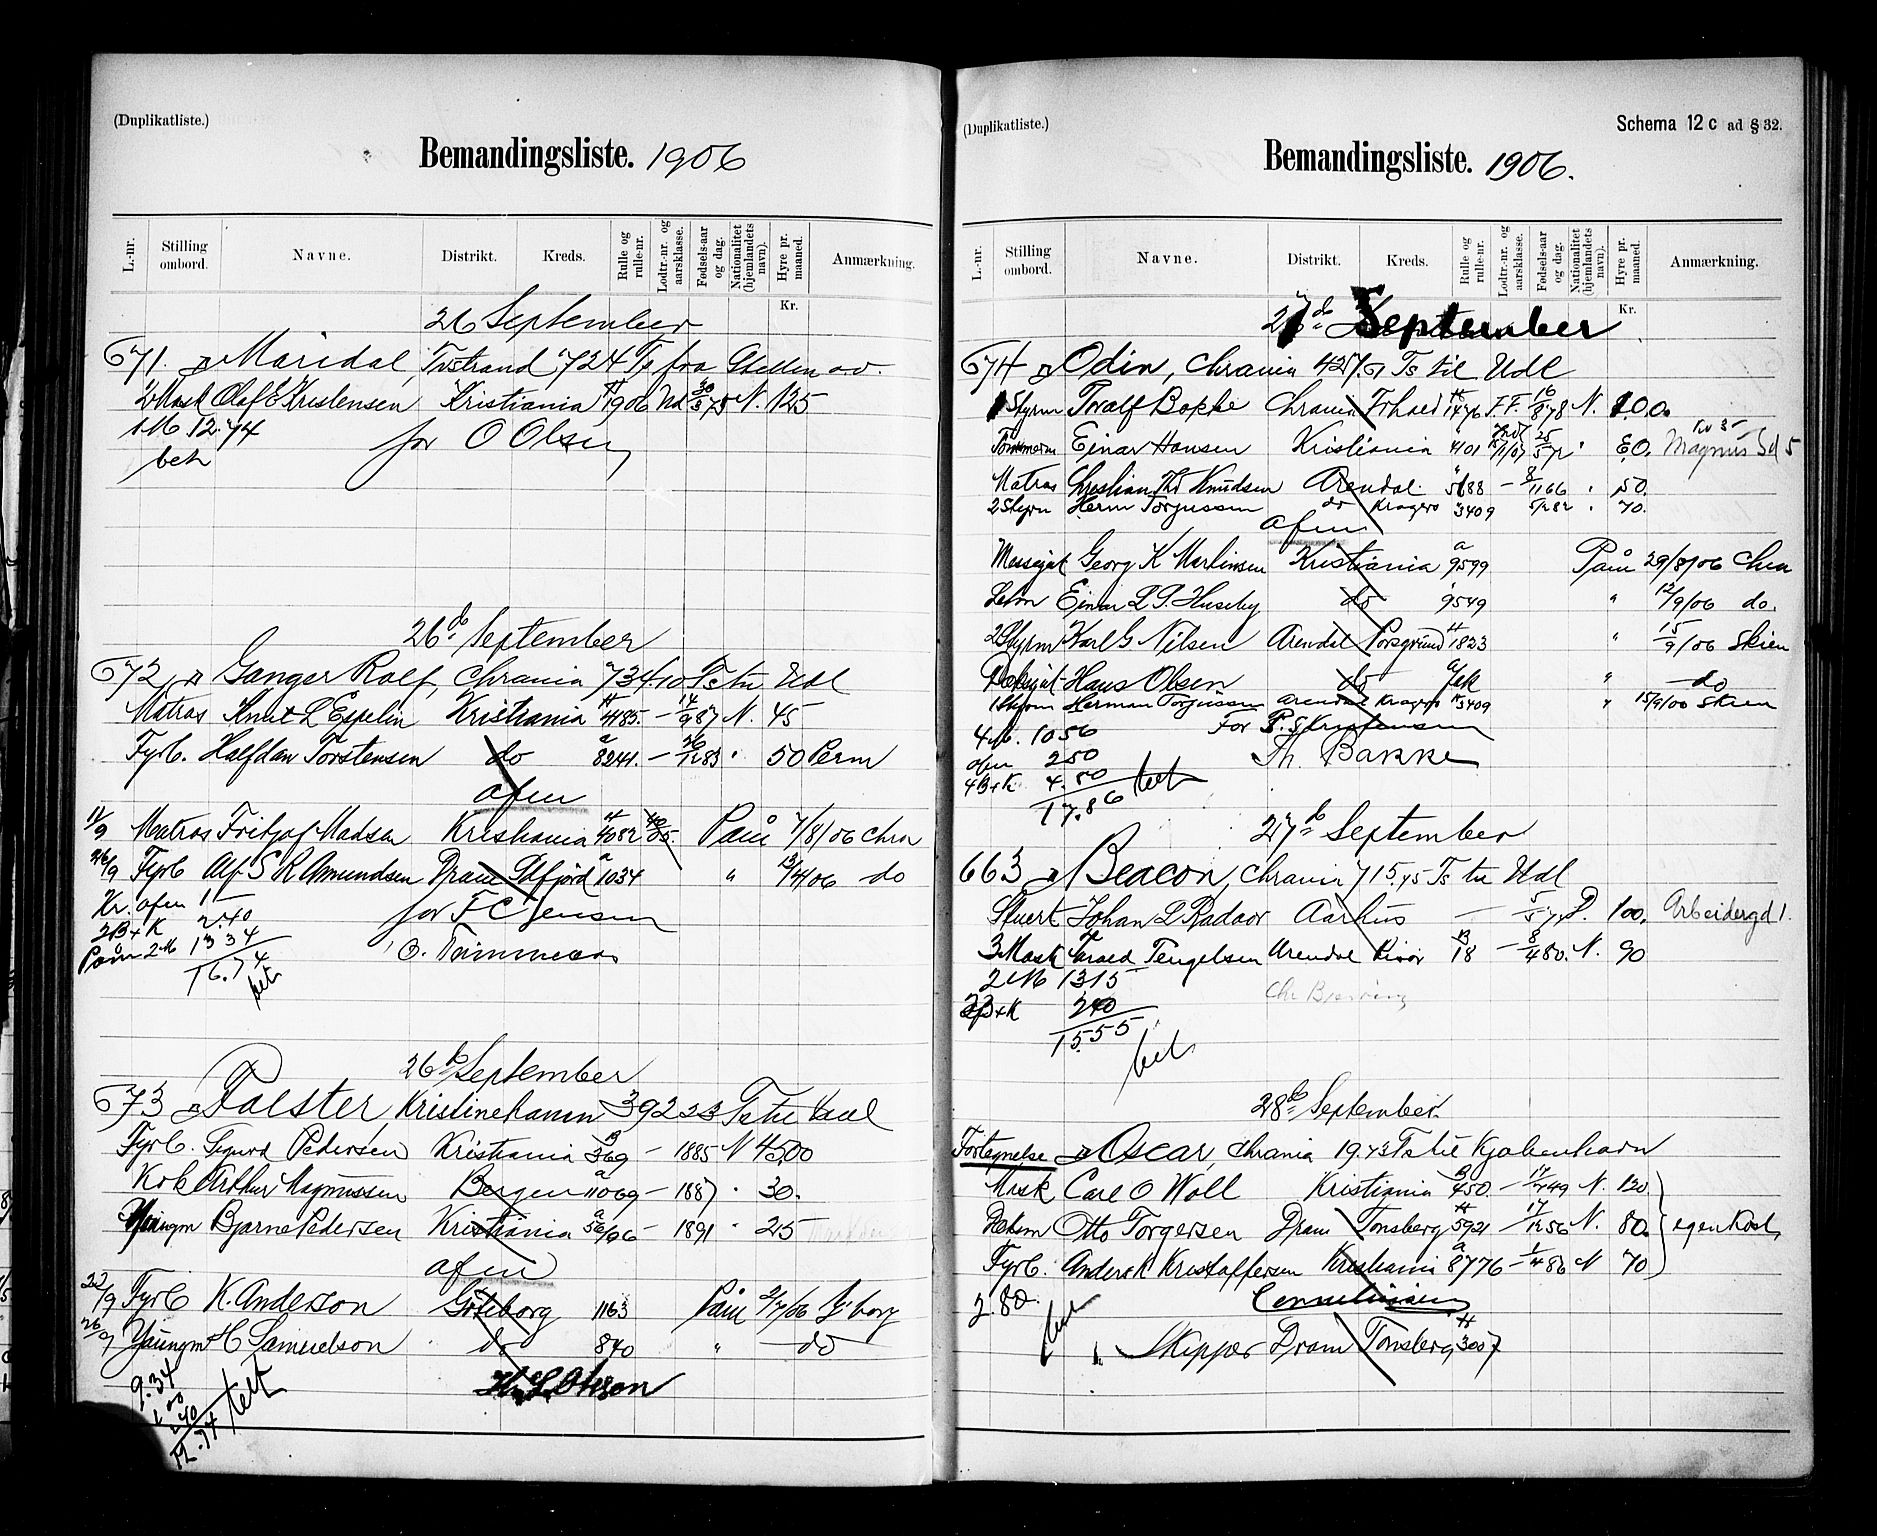 (Duplikatliste.)
Bemandingsliste. 1906
L.-nr. Stilling ombord. Navne. Distrikt. Kreds. Rulle og rulle-nr. Lodtr.-nr. og aarsklasse. Fødsels-aar og dag. Nationalitet (hjemlandets navn). Hyre pr. maaned. Anmærkning.
Kr.
26 September
671. Maridal, Tvstrand 724 Ts fra
2 Mask Olaf E Kristensen Kristiania 1906 30/3 75 N. 125
1 M 12.74 for O Olsen
bet
26 do September
672 Ganger Rolf, Chrania 734.10 Ts til Udl
Matros Knut L Espelin Kristiania 4185. — 14/9 87 N. 45
Fyrb. Halfdan Torstensen do a 8241. — 26/12 83 " 50 Perm
afm
11/9 Matros Fritjof Madsen Kristiania 4082 Paam 7/8/06 Chra
26/9 Fyrb Alf S R Amundsen Dram a 1034 " 13/4/06 do
Kr. afm 1 —
2B+K 2.40 for F C Jensen
Paam 2 M 13 34
16.74
bet
26 do September
673 Falster, Kristinehamn 392 33 Ts til Udl
Fyrb. Sigurd Pedersen Kristiania 369 — 1885 N 45.00
Kok Arthur Magnussen Bergen a 11069 — 1887 " 30.
Youngm Bjarne Pedersen Kristiania a 56/96 — 1891 " 25
afm
22/9 Fyrb K. Anderson Göteborg 1163 Paam 2/7/06 G borg
26/9 Youngm H C Samuelson do 840 " do
9.34
1 00
2 40
12.74 bet
(Duplikatliste.)
Schema 12 c ad § 32.
Bemandingsliste. 1906.
L.-nr. Stilling ombord. Navne. Distrikt. Kreds. Rulle og rulle-nr. Lodtr.-nr. og aarsklasse. Fødsels-aar og dag. Nationalitet (hjemlandets navn). Hyre pr. maaned. Anmærkning.
Kr.
27 do September
674 Odin, Chrania 427.61 Ts til Udl
1 Styrm Toralf Bopke Chrania 1476 F.F. 16/8 78 N. 100.
Tømmerm Einar Hansen Kristiania 4101 25/5 72 " 80. Magnus
Matros Christian Th Knudsen Arendal 5188 — 8/11 66 " 50.
2 Styrm Herm Torjussen do Kragerø 3409 5/2 82 " 70.
afm
Messegut Georg K Martinsen Kristiania a 9599 Paam 29/8/06 Chra
Einar L P. Huseby do 9549 " 12/9/06 do.
2 Styrm Karl G Nilsen Arendal Porsgrund 1823 " 15/9/06 Skien
Dæksgut Hans Olsen do " do
1 Styrm Herman Torjussen Arendal Kragerø 3409 " 15/9/06 Skien
4 M. 10 56 For P. S. Kristensen
afm 2 50 Th. Bakke
4 B+K 4.80
17.86 bet
27 do September
663 Beacon, Chrania 715.45 Ts til Udl
Stuert Johan L Radoor Aarhus — 100. Arbeidergd 1.
3 Mask Tengelsen Arendal Risør 18 — 8/4 80. N. 90
2 M 13 15
2B+K 2 40
15.55
bet
28 do September
Fortegnelse Oscar, Chrania 19.43 Ts til Kjøbenhavn
Mask Carl O Woll Kristiania 450. — 17/7 49 N. 120
Dæksm Otto Torgersen Dram Tonsberg 5921 — 17/12 56 N. 80. egen Kost
Fyrb. Anders K Kristoffersen Kristiania a 8776 — 1/4 86 N 70
2.80. Cornelius
Skipper Dram Tonsberg 3007